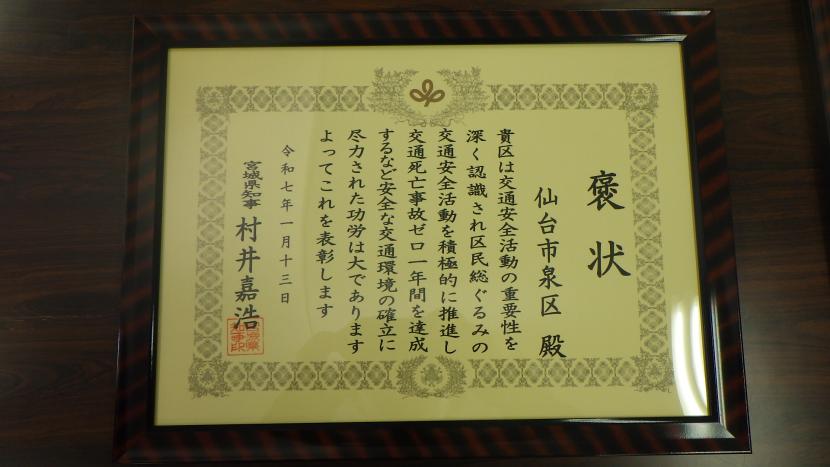 褒状
仙台市泉区 殿
貴区は交通安全活動の重要性を
深く認識され区民総ぐるみの
交通安全活動を積極的に推進し
交通死亡事故ゼロ一年間を達成
するなど安全な交通環境の確立に
尽力された功労は大であります
よってこれを表彰します
令和七年一月十三日
宮城県知事 村井嘉浩